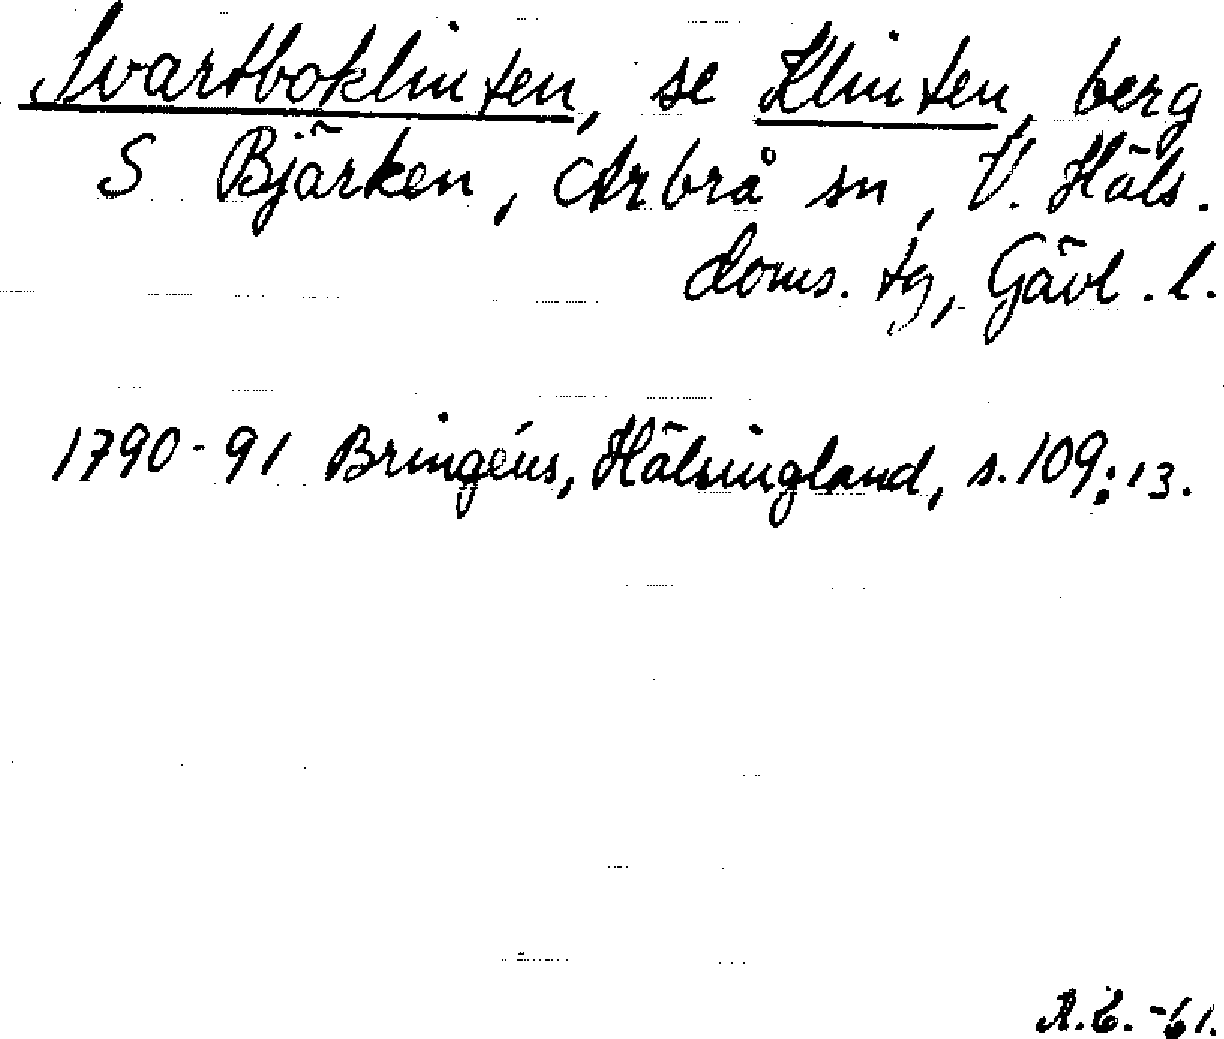 Svartboklinten, se Klinten, berg
S Bjärken, Arbrå sn, V. Häls.
doms. tg, Gävl. l.
1790-91 Bringéus, Hälsingland, s. 109:13.
A.E. -61.